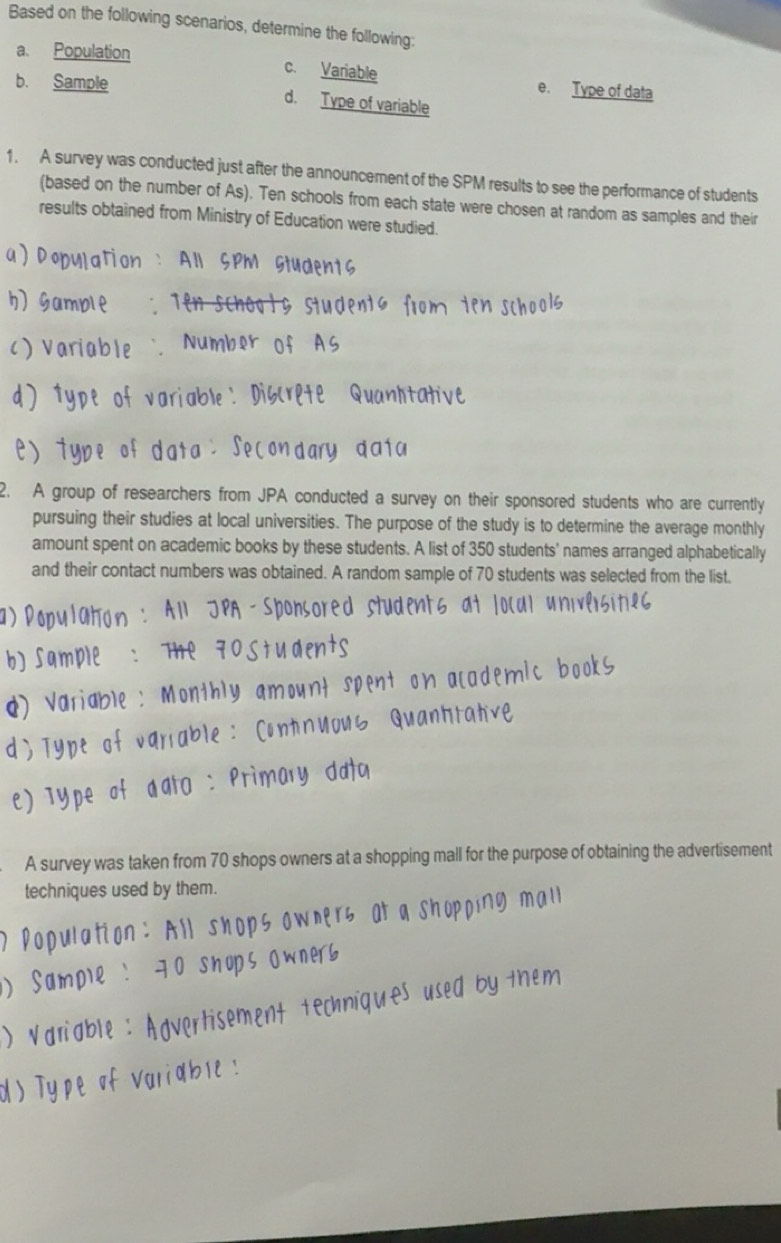 Based on the following scenarios, determine the following:
a. Population
b. Sample
c. Variable
d. Type of variable
e. Type of data
1. A survey was conducted just after the announcement of the SPM results to see the performance of students
(based on the number of As). Ten schools from each state were chosen at random as samples and their
results obtained from Ministry of Education were studied.
a) Population : All SPM students
b) Sample : Ten schools students from ten schools
c) Variable : Number of As
d) type of variable : Discrete Quantitative
e) type of data : Secondary data
2. A group of researchers from JPA conducted a survey on their sponsored students who are currently
pursuing their studies at local universities. The purpose of the study is to determine the average monthly
amount spent on academic books by these students. A list of 350 students' names arranged alphabetically
and their contact numbers was obtained. A random sample of 70 students was selected from the list.
a) Population : All JPA - Sponsored students at local universities
b) Sample : The 70 students
d) Variable : Monthly amount spent on academic books
d) Type of variable : Continuous Quantitative
e) Type of data : Primary data
A survey was taken from 70 shops owners at a shopping mall for the purpose of obtaining the advertisement
techniques used by them.
) Population : All shops owners at a shopping mall
) Sample : 70 shops owners
) Variable : Advertisement techniques used by them
d) Type of variable :